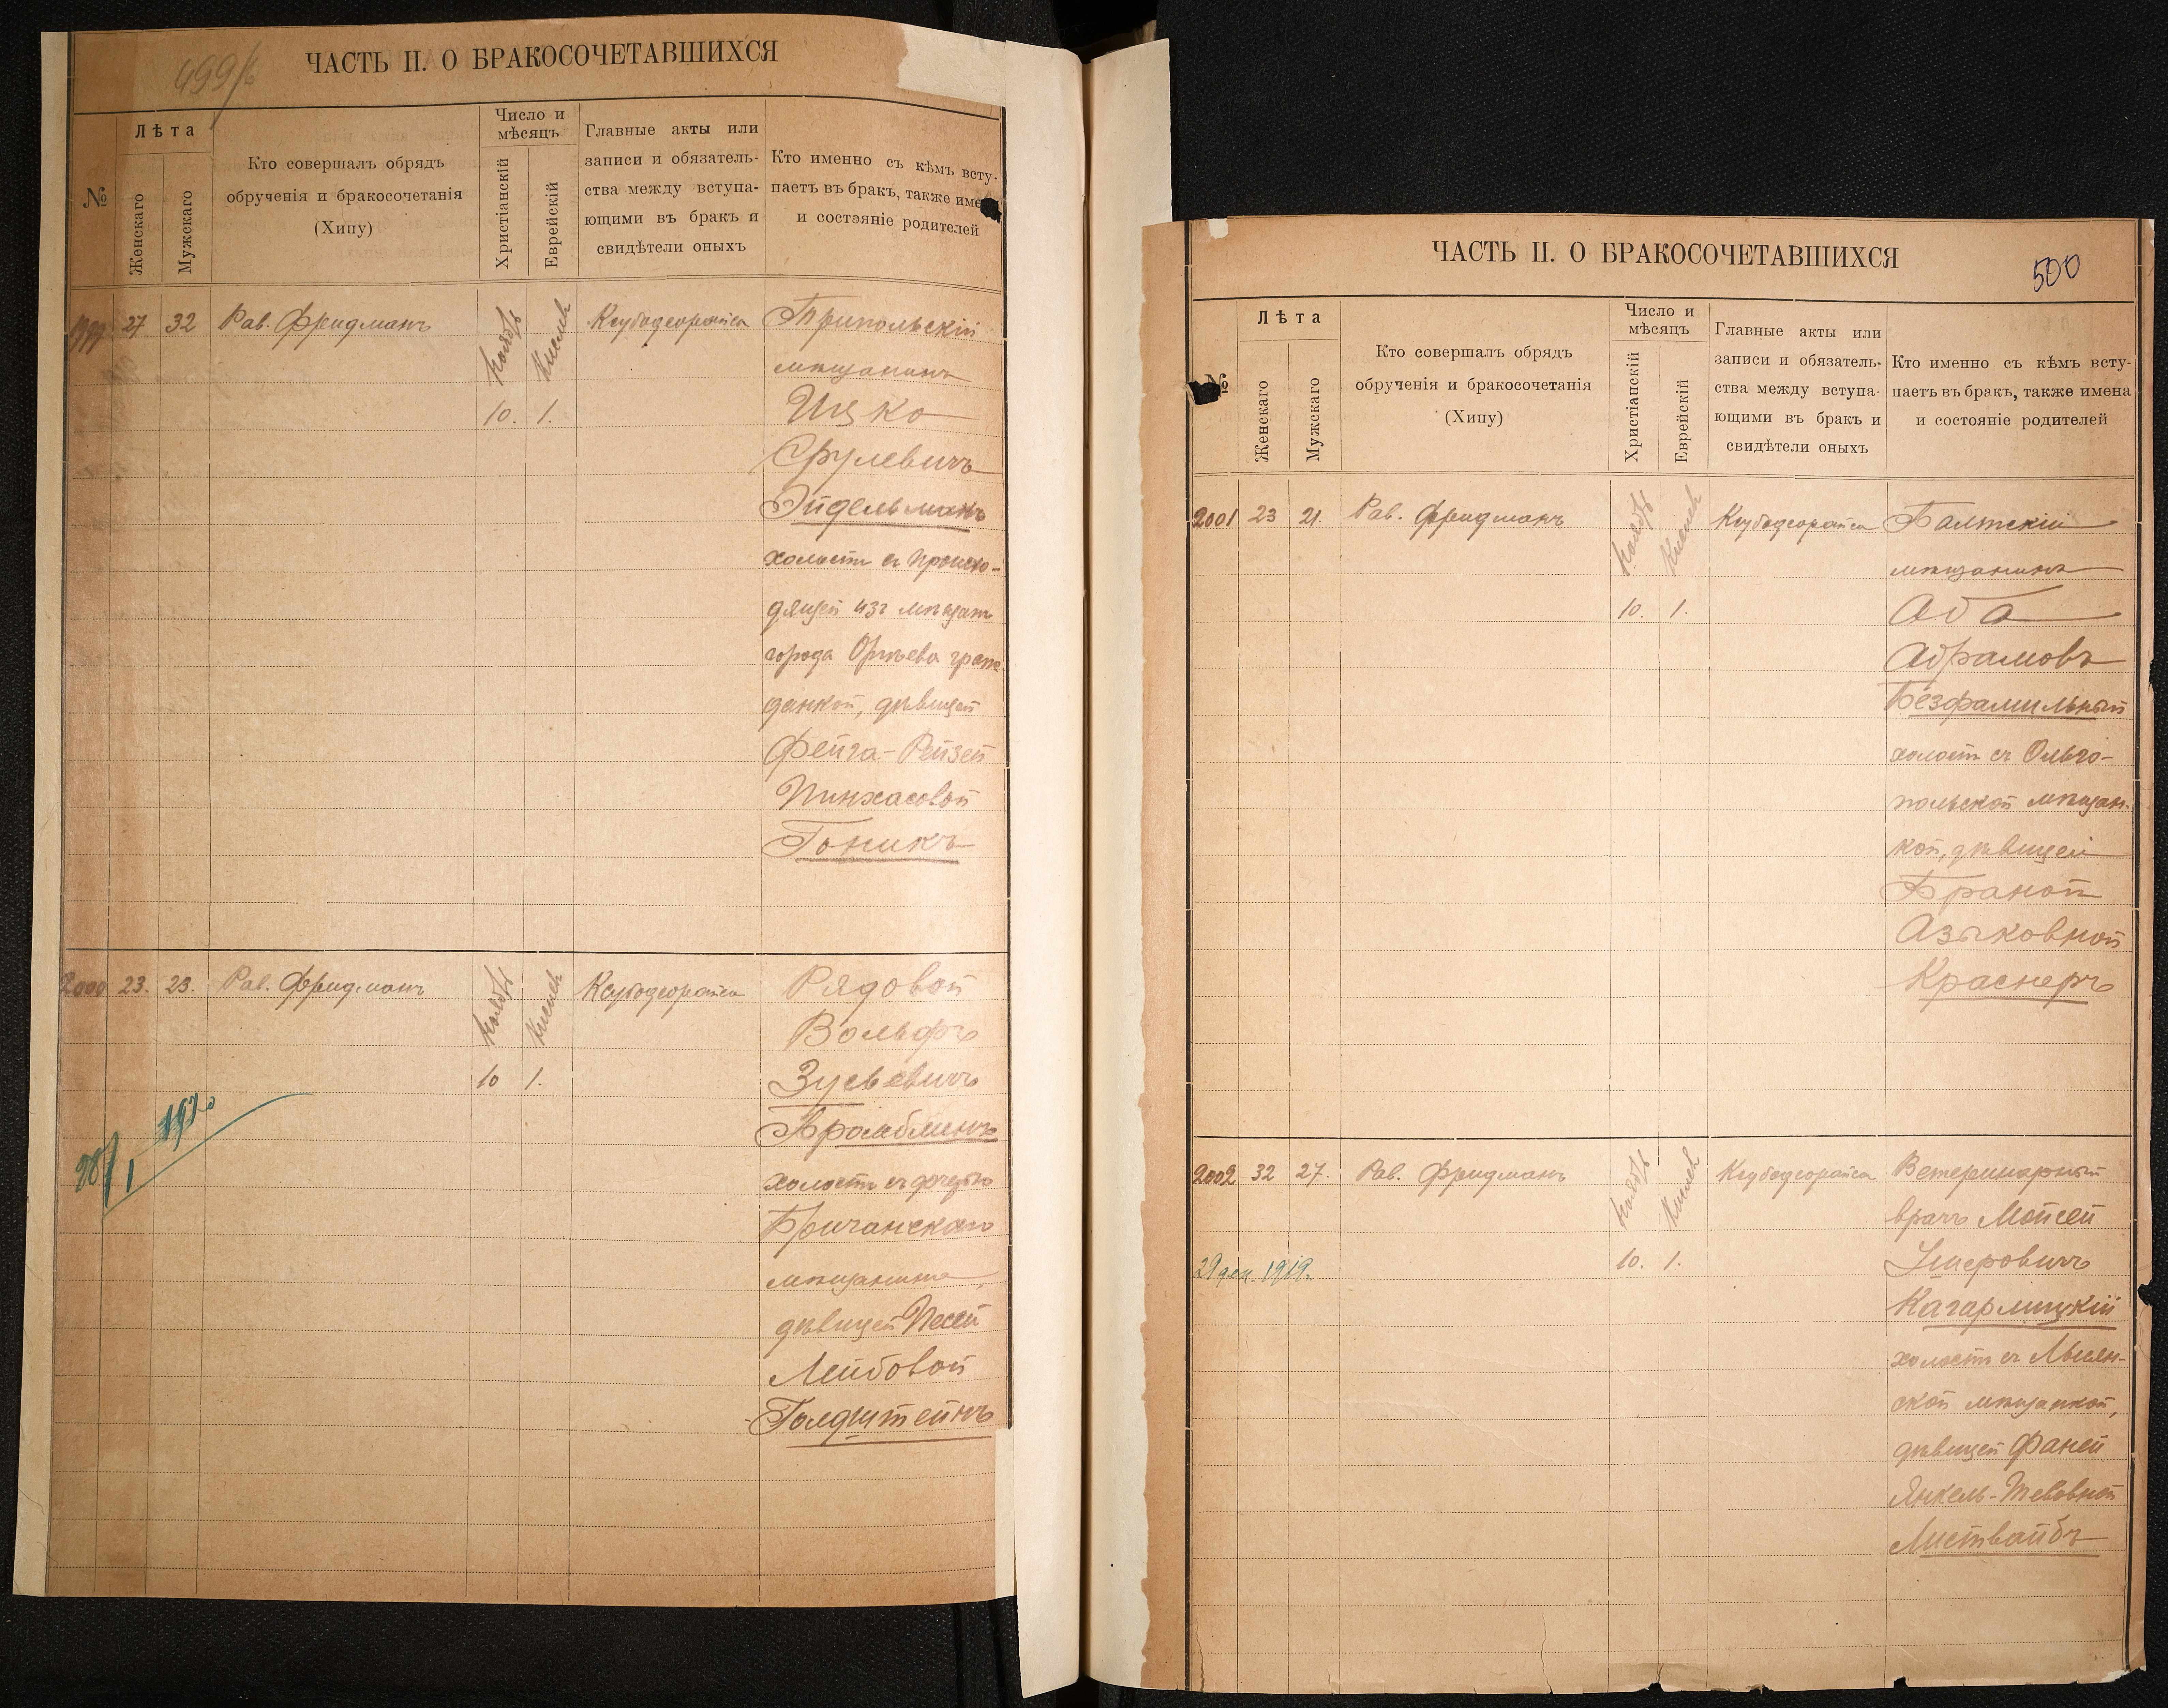 499/б
ЧАСТЬ II. О БРАКОСОЧЕТАВШИХСЯ
№
Лѣта
Женскаго
Мужскаго
Кто совершалъ обрядъ
обрученія и бракосочетанія
(Хипу)
Число и
мѣсяцъ
Христіанскій
Еврейскій
Главные акты или
записи и обязатель-
ства между вступа-
ющими въ бракъ и
свидѣтели оныхъ
Кто именно съ кѣмъ всту-
паетъ въ бракъ, также име
и состояніе родителей
1999 27 32 Рав. Фридманъ Ноябрь Кислев Ксубодеорайса Трипольскій
мѣщанинъ
10. 1. Ицко
Срулевичъ
Эйдельманъ
холостъ съ происхо-
дящей изъ мѣщанъ
города Оргѣева граж-
данкой, дѣвицей
Фейга-Рейзей
Пинхасовой
Гоникъ
2000 23. 23. Рав. Фридманъ Ноябрь Кислев Ксубодеорайса Рядовой
Вольфъ
10 1. Зусьевичъ
28/1 1920
холостъ съ дочерью
Бричанскаго
мѣщанина,
дѣвицей Песей
Лейбовой
Голдштейнъ
500
ЧАСТЬ II. О БРАКОСОЧЕТАВШИХСЯ
№
Лѣта
Женскаго
Мужскаго
Кто совершалъ обрядъ
обрученія и бракосочетанія
(Хипу)
Число и
мѣсяцъ
Христіанскій
Еврейскій
Главные акты или
записи и обязатель-
ства между вступа-
ющими въ бракъ и
свидѣтели оныхъ
Кто именно съ кѣмъ всту-
паетъ въ бракъ, также имена
и состояніе родителей
2001 23 21. Рав. Фридманъ Ноябрь Кислев Ксубодеорайса Балтскій
мѣщанинъ
10. 1. Аба
Абрамовъ
Безфамильный
холостъ съ Ольго-
польской мѣщан-
кой, дѣвицей
Браной
Азыковной
Краснеръ
2002 32 27. Рав. Фридманъ Ноябрь Кислев Ксубодеорайса Ветеринарный
врачъ Мойсей
29 дек. 1919. 10. 1. Умеровичъ
Кагарлицкій
холостъ съ
ской мѣщанкой,
дѣвицей Фаней
Янкель-Тевовной
Листвайбъ